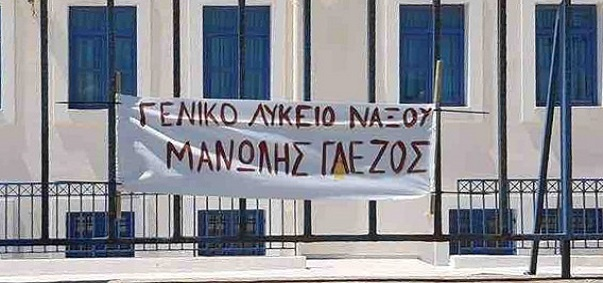 ΓΕΝΙΚΟ ΛΥΚΕΙΟ ΝΑΞΟΥ
ΜΑΝΩΛΗΣ ΓΛΕΖΟΣ